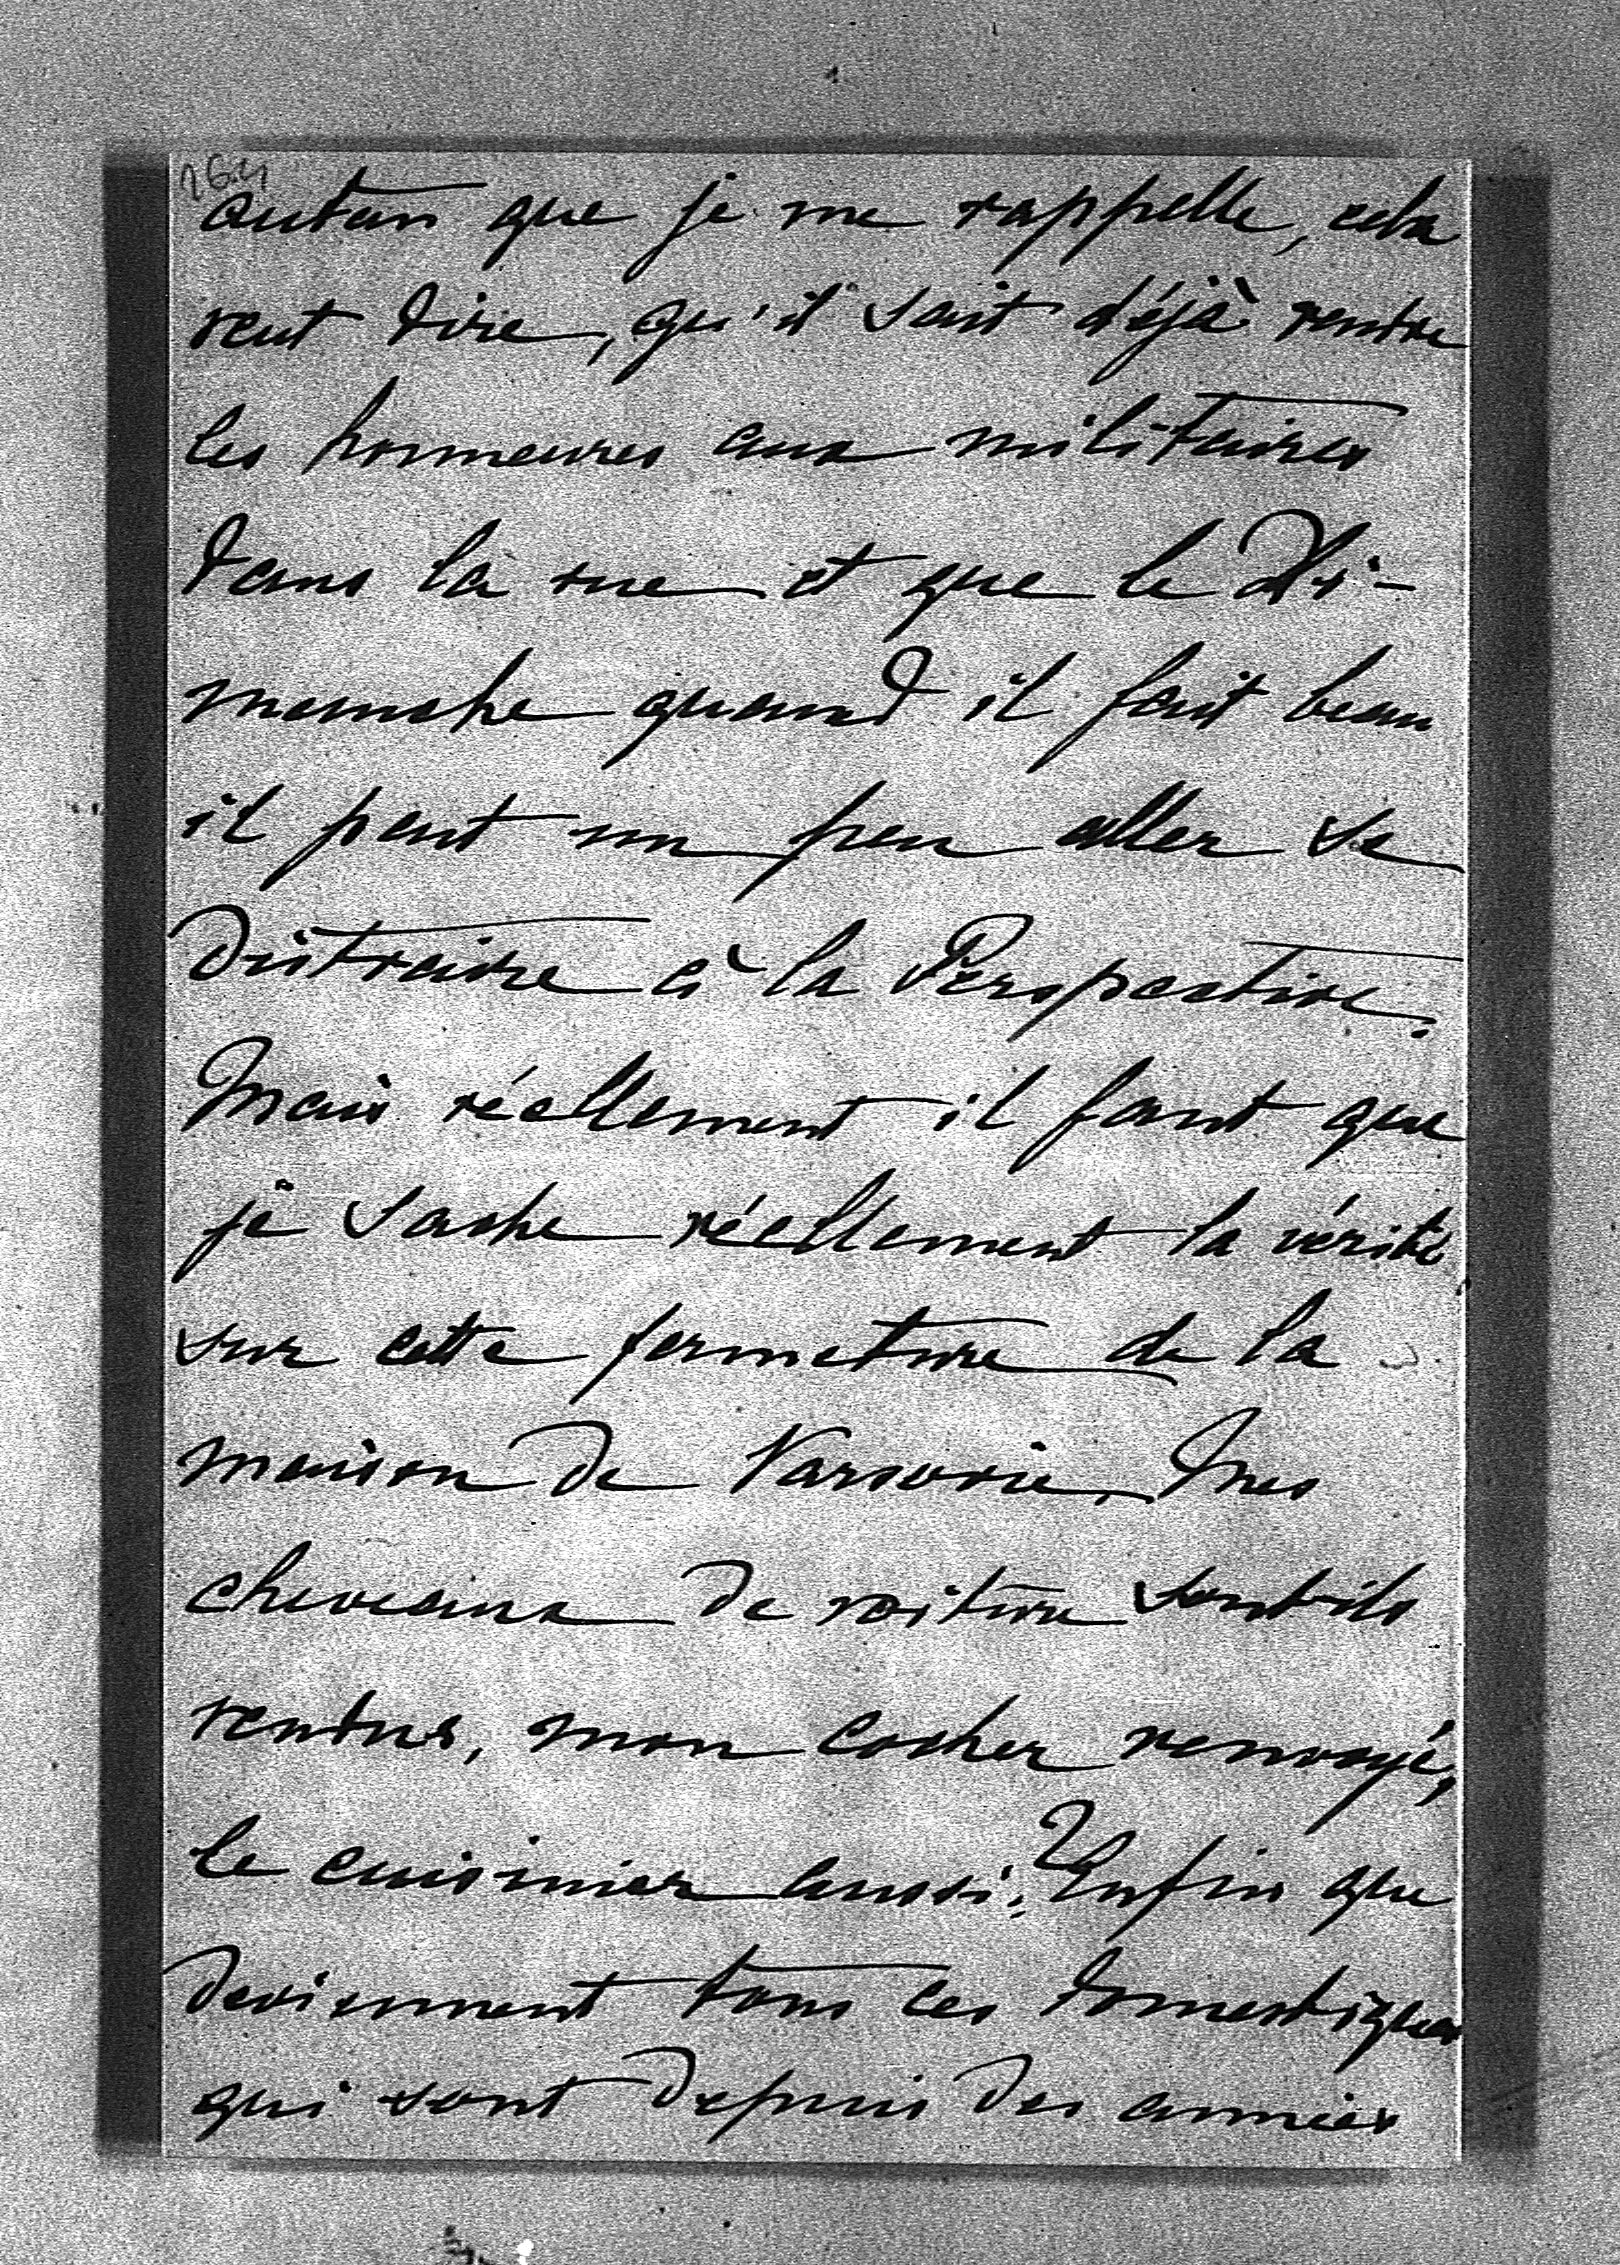 autan que je me rappelle, cela
veut dire, qu'il sait déjà rendre
les honneures aux militaires
dans la rue et que le Di-
manche quand il fait beau
il peut un peu aller se
distraire à la Perspective.
Mais réellement il faut que
je sache réellement la vérité
sur cette fermeture de la
maison de Varsovie. Mes
cheveaux de voiture sont-ils
rendus, mon cocher renvoyé,
le cuisinier aussi? Enfin que
deviennent tous ces domestiques
qui sont depuis des années